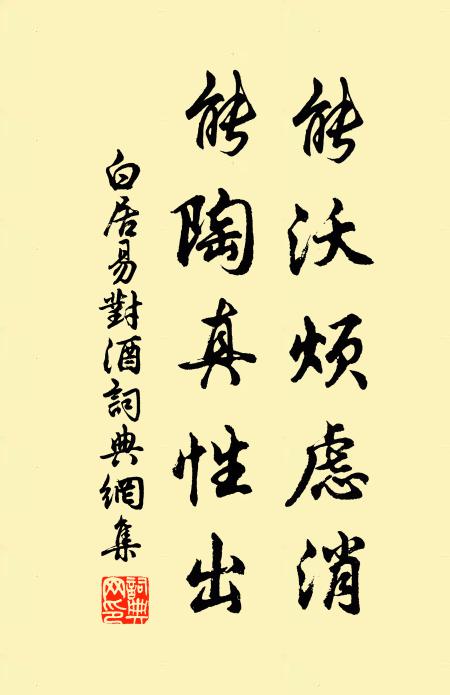 能沃烦虑消
能陶真性出
白居易對酒詞典網集
詞典
网印